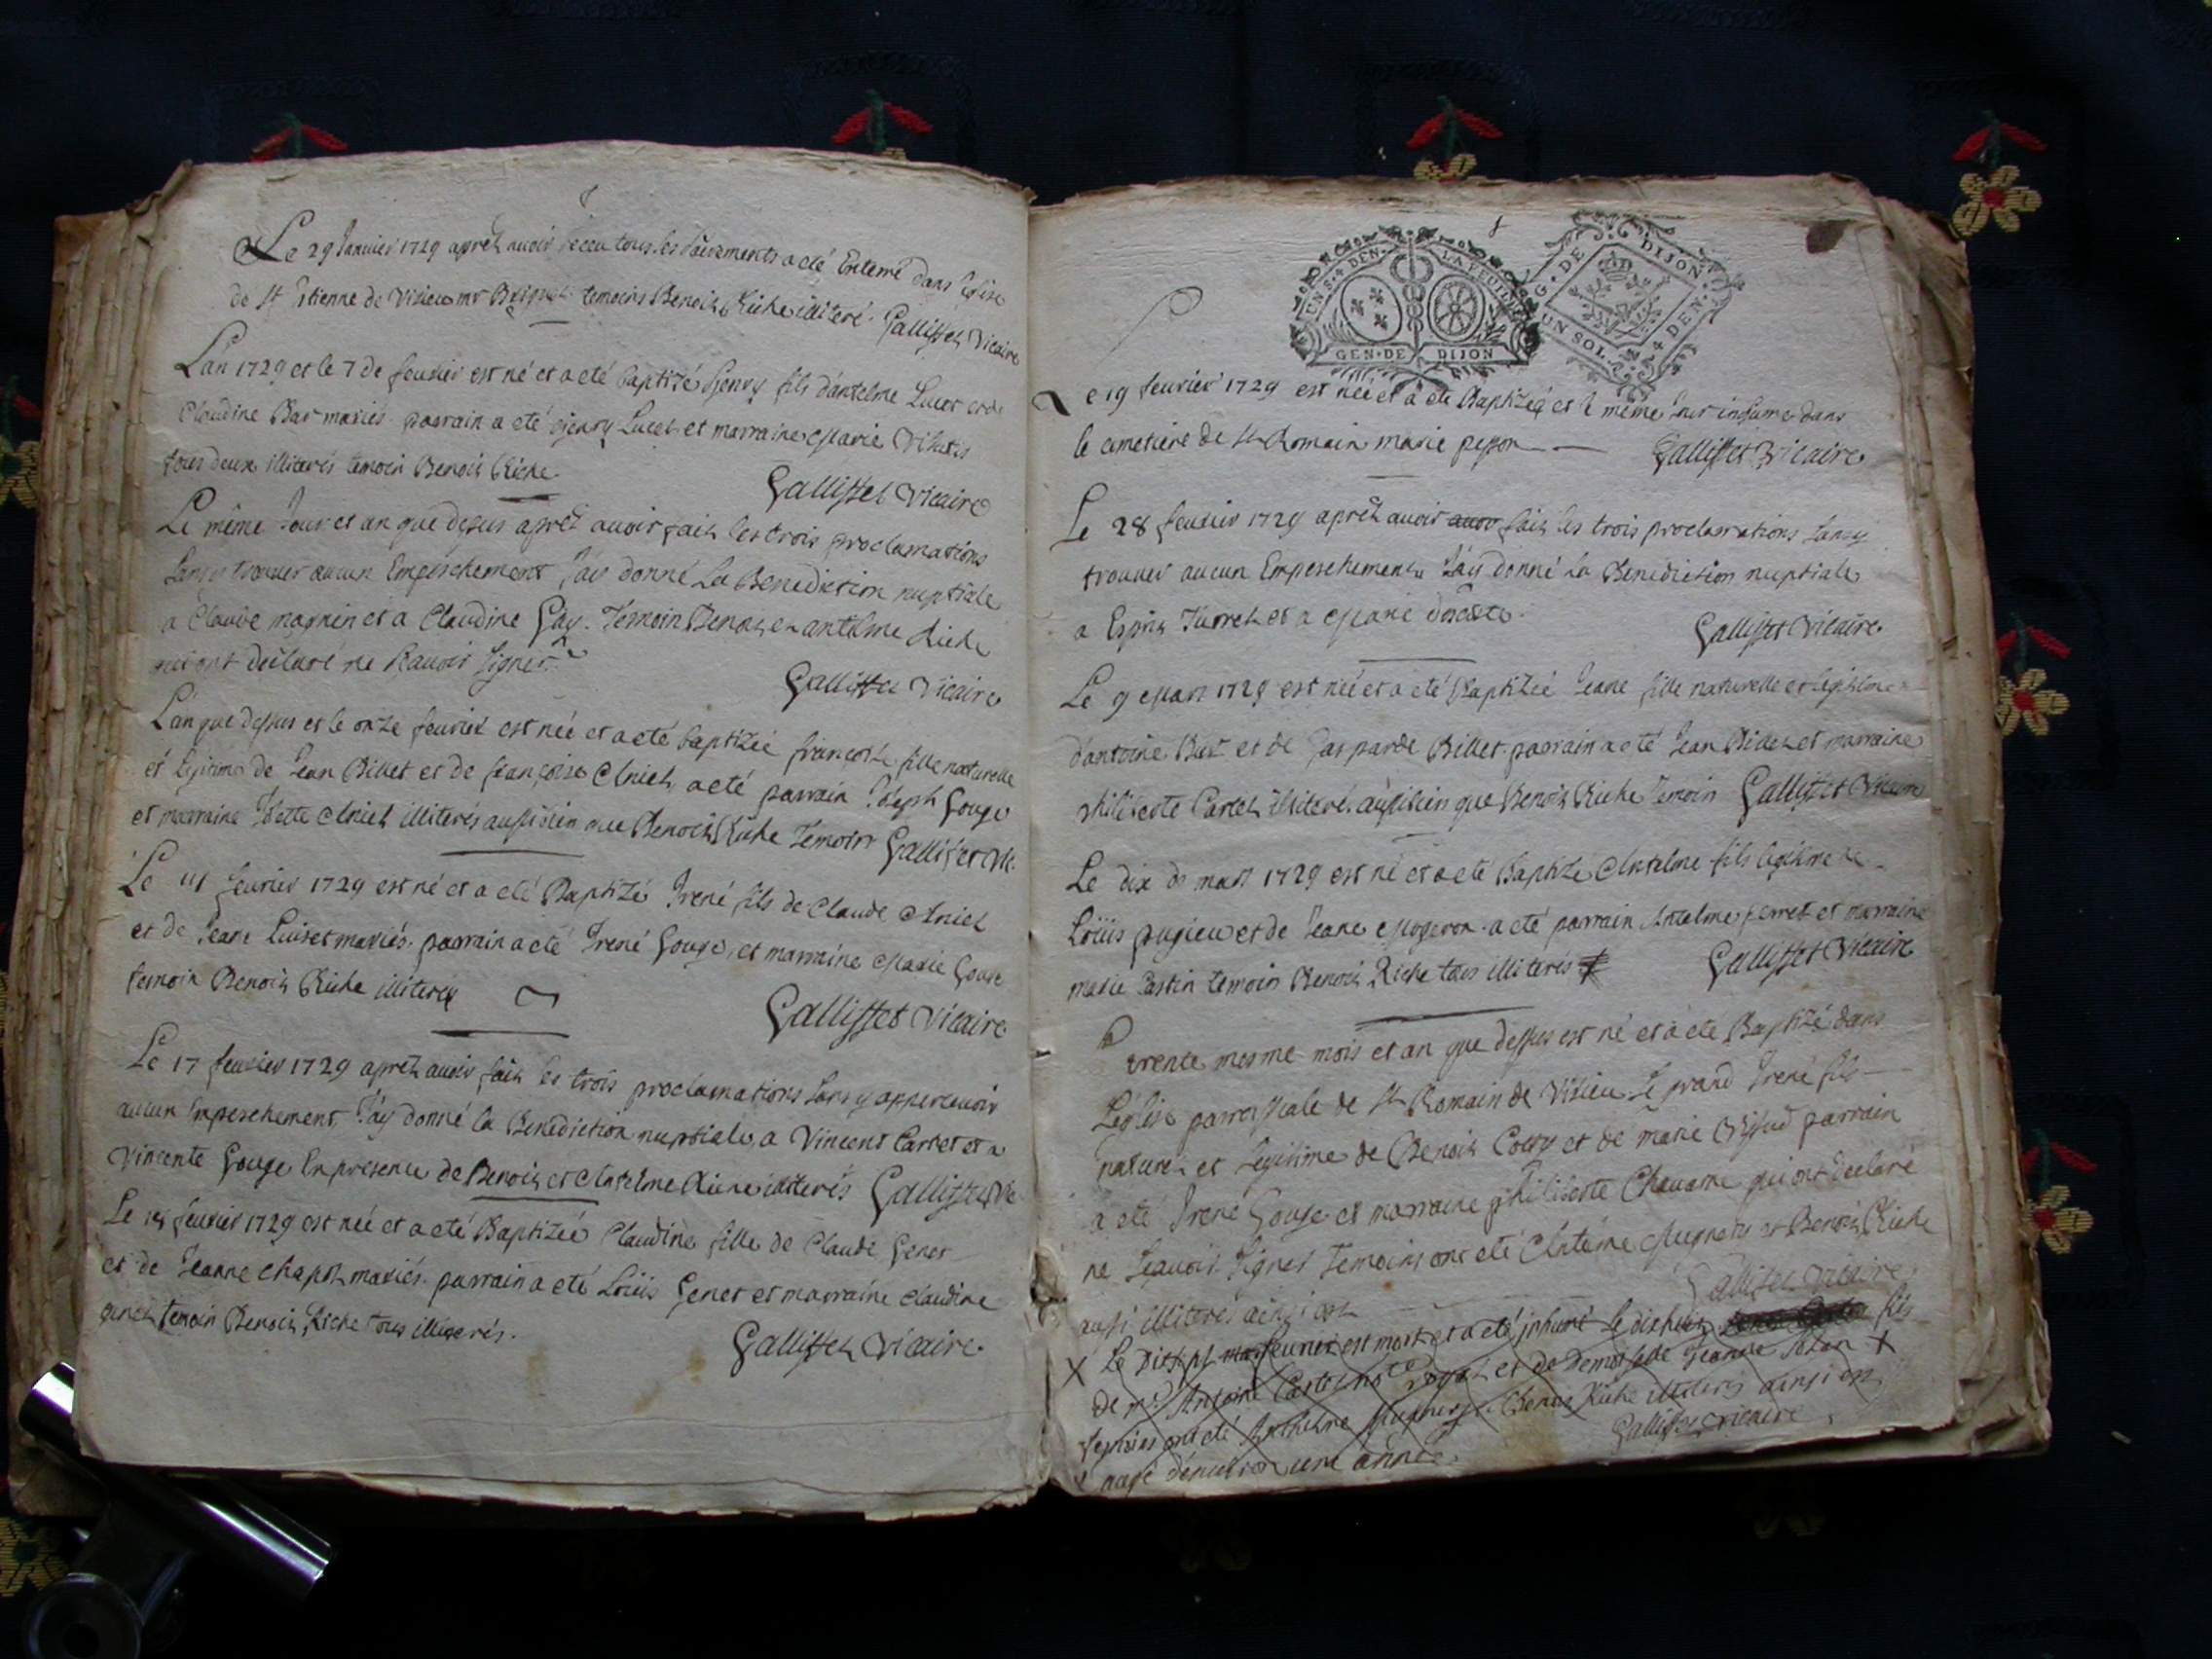 Le 29 Janvier 1729 apret avoir receu tous les sacrements a eté Enterré dans leglise
de St Estienne de Virieu mr temoins Benoit Riche illiteré. Gallisset Vicaire
Lan 1729 et le 7 de fevrier est né et a eté baptizé henry fils dantelme Lucet et de
Claudine Bar mariés. parrain a eté henry Lucet et marraine Marie
tous deux illiterés temoin Benoit Riche.
Gallisset Vicaire
Le même Jour et an que dessus apret avoir fait les trois proclamations
sans y trouver aucun Empeschement J'ay donné La Benediction nuptiale
a Claude magnin et a Claudine Gay. Temoin Benoit et antelme Riche
qui ont declaré ne scavoir signer.
Gallisset Vicaire
Lan que dessus et le onze fevrier est née et a eté baptizée francoise fille naturelle
et legitime de Jean Billet et de francoise Aniel, a eté parrain Joseph Gouge
et marraine Aniel illiterés aussi bien que Benoit Riche Temoin Gallisset Vic.
Le fevrier 1729 est né et a eté Baptizé Irené fils de Claude Aniel
et de Jeane mariés. parrain a eté Irené Gouge, et marraine Marie Gouge
temoin Benoit Riche illiterés
Gallisset Vicaire
Le 17 fevrier 1729 apret avoir fait les trois proclamations sans y appercevoir
aucun Empeschement, J'ay donné la Benediction nuptiale, a Vincent Carret et a
Vincente Gouge En presence de Benoit et Antelme Riche illiterés Gallisset Vic
Le fevrier 1729 est née et a eté Baptizée Claudine fille de Claude Genet
et de Jeanne mariés. parrain a eté Loüis Genet et marraine claudine
genet temoin Benoit Riche tous illiterés.
Gallisset Vicaire
UN S. 4 DEN. LA FEUILLE
GEN. DE DIJON
G. DE DIJON
UN SOL. 4 DEN.
Le 19 fevrier 1729 est née et a eté Baptizée et le même Jour inhumé dans
le cimetiere de St Romain marie Gallisset Vicaire
Le 28 fevrier 1729 apret avoir avoir fait les trois proclamations sans y
trouver aucun Empeschement J'ay donné La Benediction nuptiale
a Esprit et a Marie
Gallisset Vicaire
Le 9 Mars 1729 est née et a eté Baptizée Jeane fille naturelle et legitime
dantoine et de Gasparde Billet. parrain a eté Jean Billet et marraine
philiberte Carret illiteré. aussi bien que Benoit Riche Temoin Gallisset Vicaire
Le dix de mars 1729 est né et a eté Baptizé Antelme fils legitime de
Loüis pugieu et de Jeane Mogeron. a eté parrain Antelme perret et marraine
marie temoin Benoit Riche tous illiterés
Gallisset Vicaire
trente mesme mois et an que dessus est né et a eté Baptizé dans
Leglise parroissiale de St Romain de Virieu Le grand Irené fils
naturel et Legitime de Benoit et de marie parrain
a eté Irené Gouge et marraine philiberte qui ont declaré
ne sçavoir signer Temoins ont eté Antelme et Benoit Riche
aussi illiterés ainsi est
Gallisset Vicaire
Le est mort et a eté inhumé Le fils
de mr Antoine royal et de demoiselle Jeanne
temoins ont eté Anthelme Benoit Riche illiterés ainsi est
agé denviron une année. Gallisset vicaire